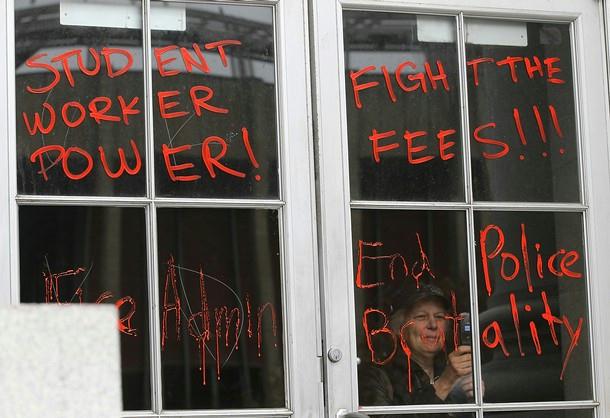 STUDENT
WORKER
POWER!
FIGHT THE
FEES!!!
Fire Admin
End Police
Brutality